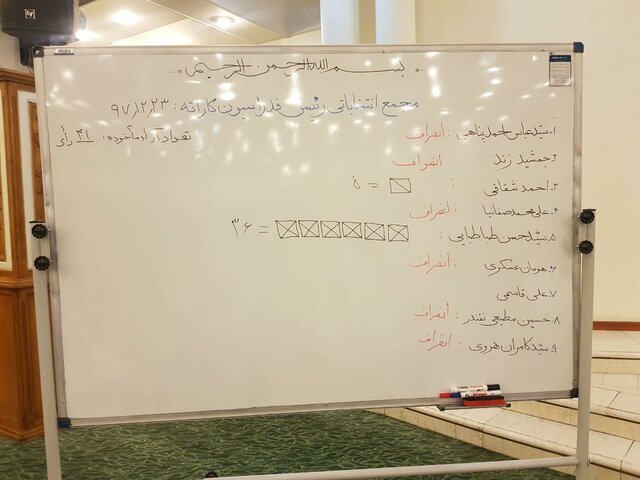 بسم الله الرحمن الرحیم
مجمع انتخاباتی رئیس فدراسیون کاراته: ۹۷/۱۲/۲۳
تعداد آراء مأخوذه: ۴۱ رأی
۱. سید عباس احمد پناهی : انصراف
۲. جمشید زند : انصراف
۳. احمد شقاقی : = ۵
۴. علی محمد صفانیا : انصراف
۵. سید حسن طباطبایی : = ۳۶
۶. هومان عسکری : انصراف
۷. علی قاسمی :
۸. حسین مطیعی نقندر : انصراف
۹. سید کامران هروی : انصراف